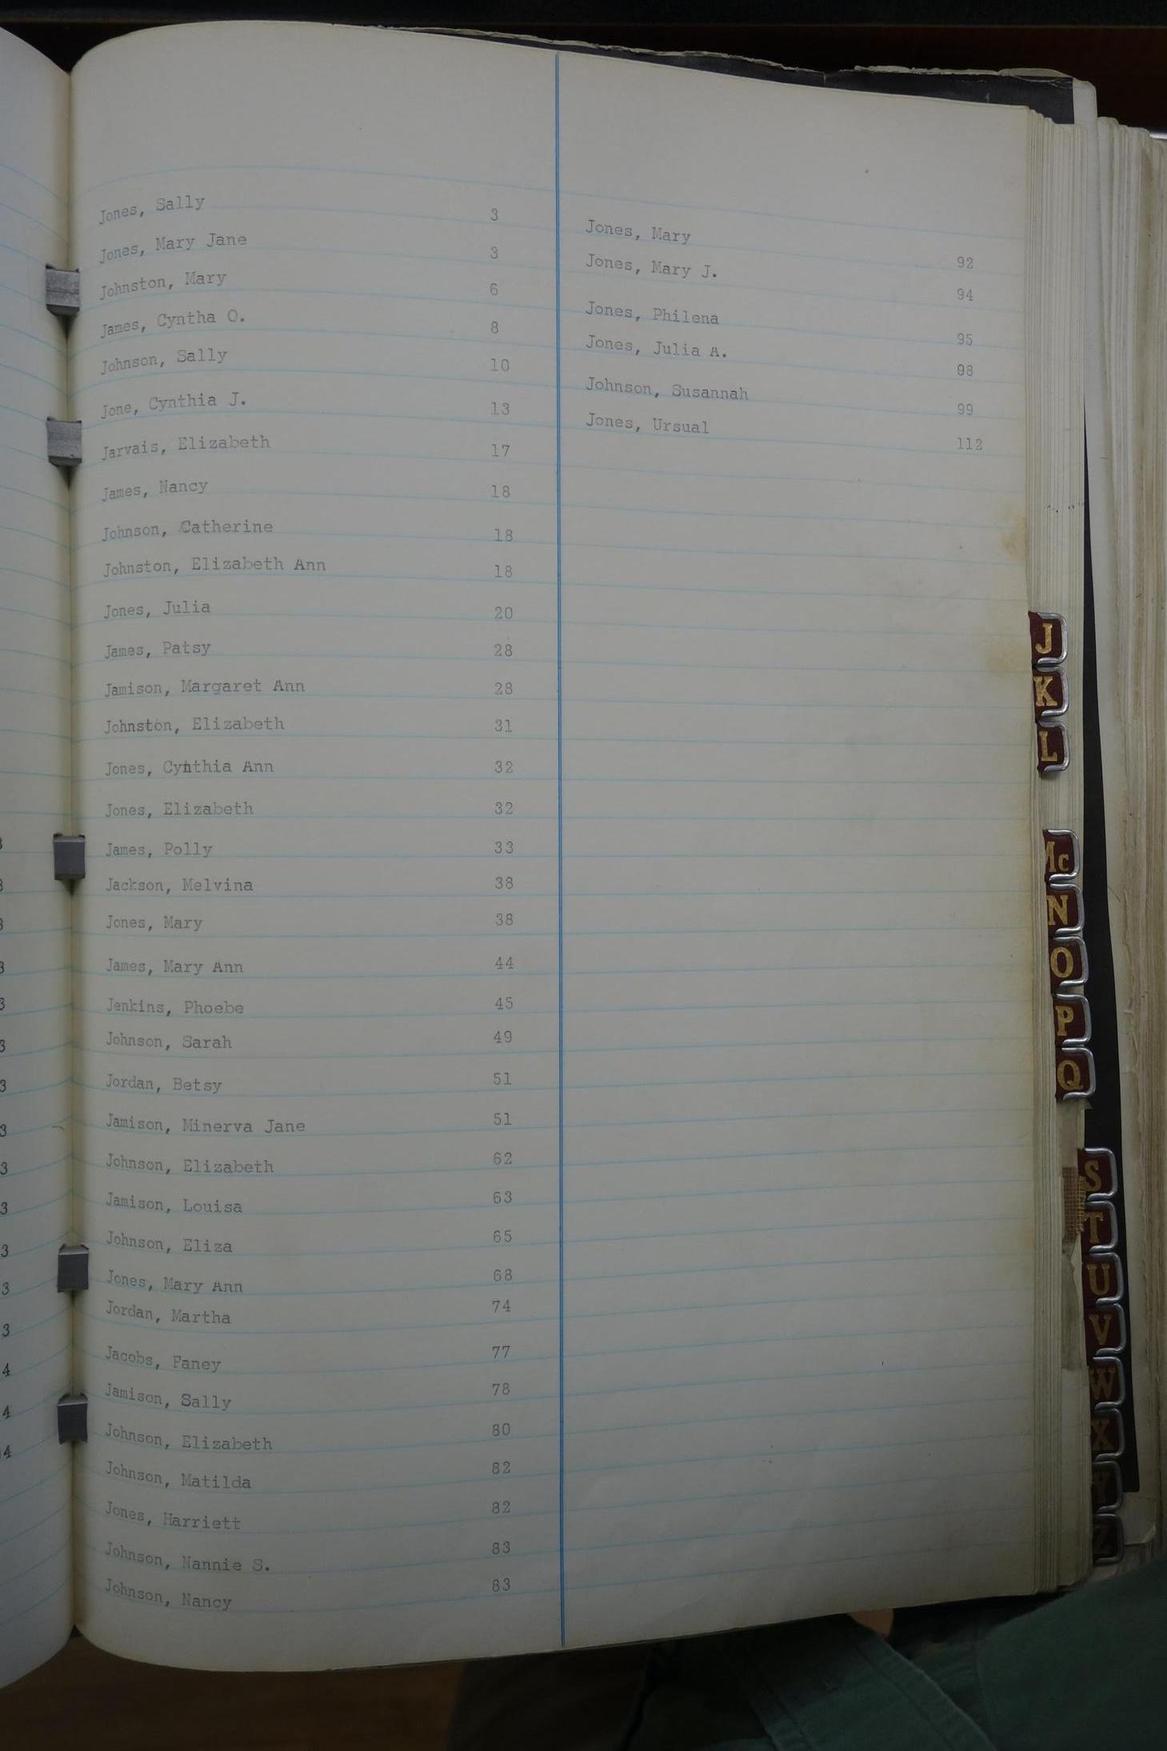 Jones, Sally 3
Jones, Mary Jane 3
Johnston, Mary 6
James, Cyntha O. 8
Johnson, Sally 10
Jone, Cynthia J. 13
Jarvais, Elizabeth 17
James, Nancy 18
Johnson, Catherine 18
Johnston, Elizabeth Ann 18
Jones, Julia 20
James, Patsy 28
Jamison, Margaret Ann 28
Johnston, Elizabeth 31
Jones, Cynthia Ann 32
Jones, Elizabeth 32
James, Polly 33
Jackson, Melvina 38
Jones, Mary 38
James, Mary Ann 44
Jenkins, Phoebe 45
Johnson, Sarah 49
Jordan, Betsy 51
Jamison, Minerva Jane 51
Johnson, Elizabeth 62
Jamison, Louisa 63
Johnson, Eliza 65
Jones, Mary Ann 68
Jordan, Martha 74
Jacobs, Faney 77
Jamison, Sally 78
Johnson, Elizabeth 80
Johnson, Matilda 82
Jones, Harriett 82
Johnson, Nannie S. 83
Johnson, Nancy 83
Jones, Mary 92
Jones, Mary J. 94
Jones, Philena 95
Jones, Julia A. 98
Johnson, Susannah 99
Jones, Ursual 112
J
K
L
Mc
N
O
P
Q
S
T
U
V
W
X
Y
Z